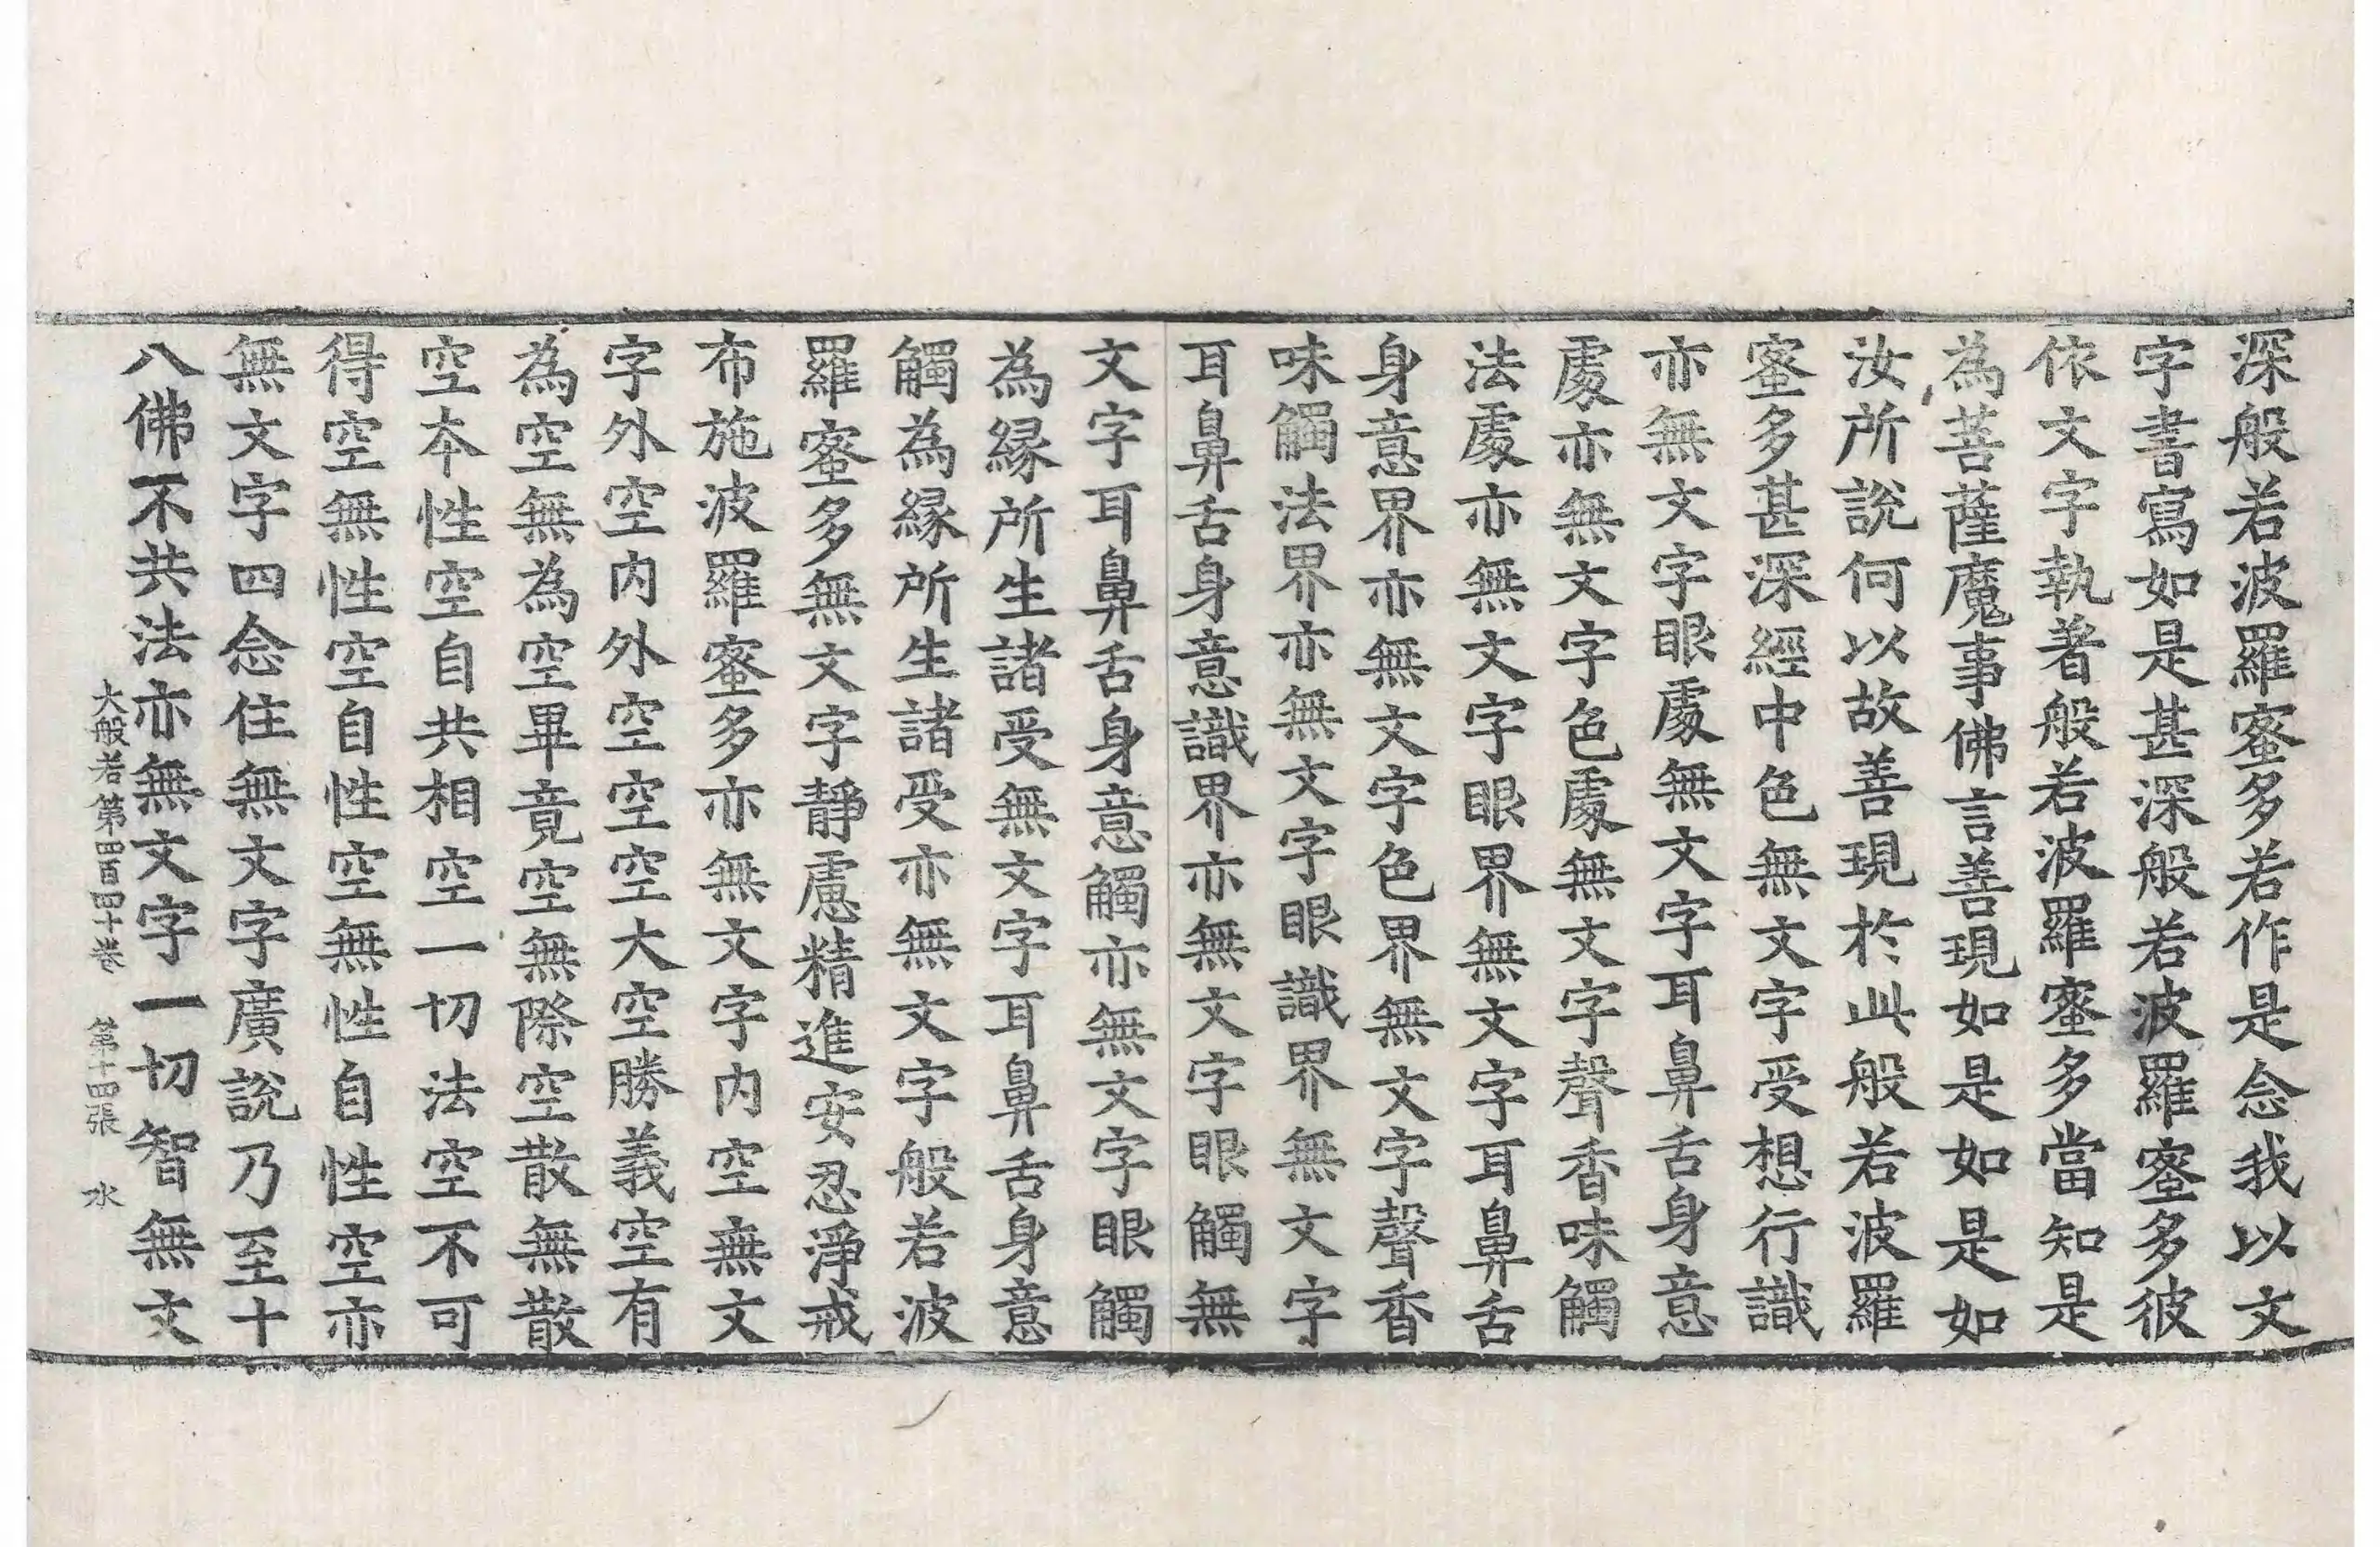 深般若波羅蜜多若作是念我以文
字書寫如是甚深般若波羅蜜多彼
依文字執著般若波羅蜜多當知是
為菩薩魔事佛言善現如是如是如
汝所說何以故善現於此般若波羅
蜜多甚深經中色無文字受想行識
亦無文字眼處無文字耳鼻舌身意
處亦無文字色處無文字聲香味觸
法處亦無文字眼界無文字耳鼻舌
身意界亦無文字色界無文字聲香
味觸法界亦無文字眼識界無文字
耳鼻舌身意識界亦無文字眼觸無
文字耳鼻舌身意觸亦無文字眼觸
為緣所生諸受無文字耳鼻舌身意
觸為緣所生諸受亦無文字般若波
羅蜜多無文字靜慮精進安忍淨戒
布施波羅蜜多亦無文字內空無文
字外空內外空空空大空勝義空有
為空無為空畢竟空無際空散無散
空本性空自共相空一切法空不可
得空無性空自性空無性自性空亦
無文字四念住無文字廣說乃至十
八佛不共法亦無文字一切智無文
大般若第四百四十卷 第十四張 水